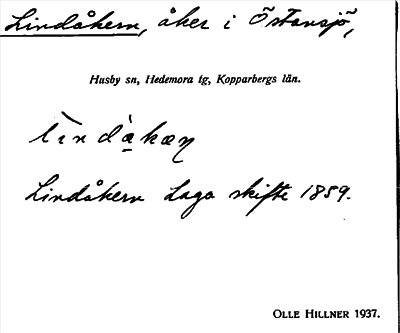 Lindåkern, åker i Östansjö,
Husby sn, Hedemora tg, Kopparbergs län.
Lindåkern Laga skifte 1859.
OLLE HILLNER 1937.